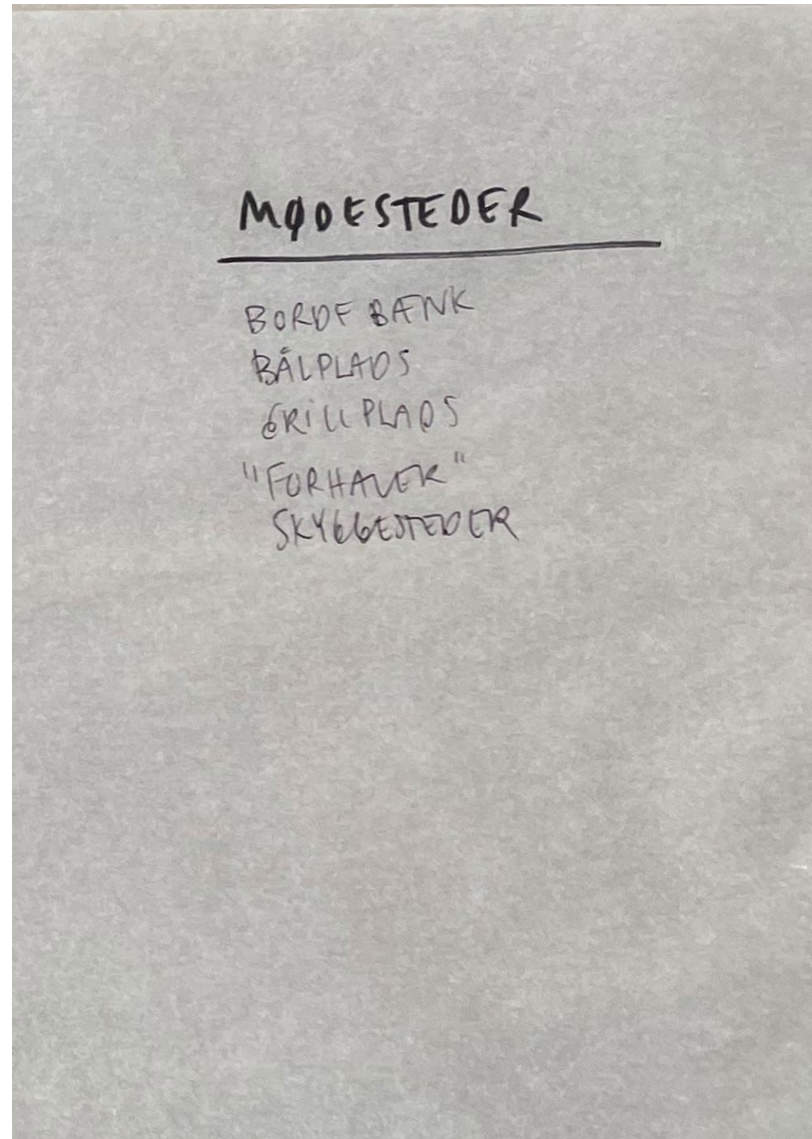 MØDESTEDER
BORDE BÆNK
BÅLPLADS
GRILLPLADS
"FORHAVER"
SKYGGESTEDER